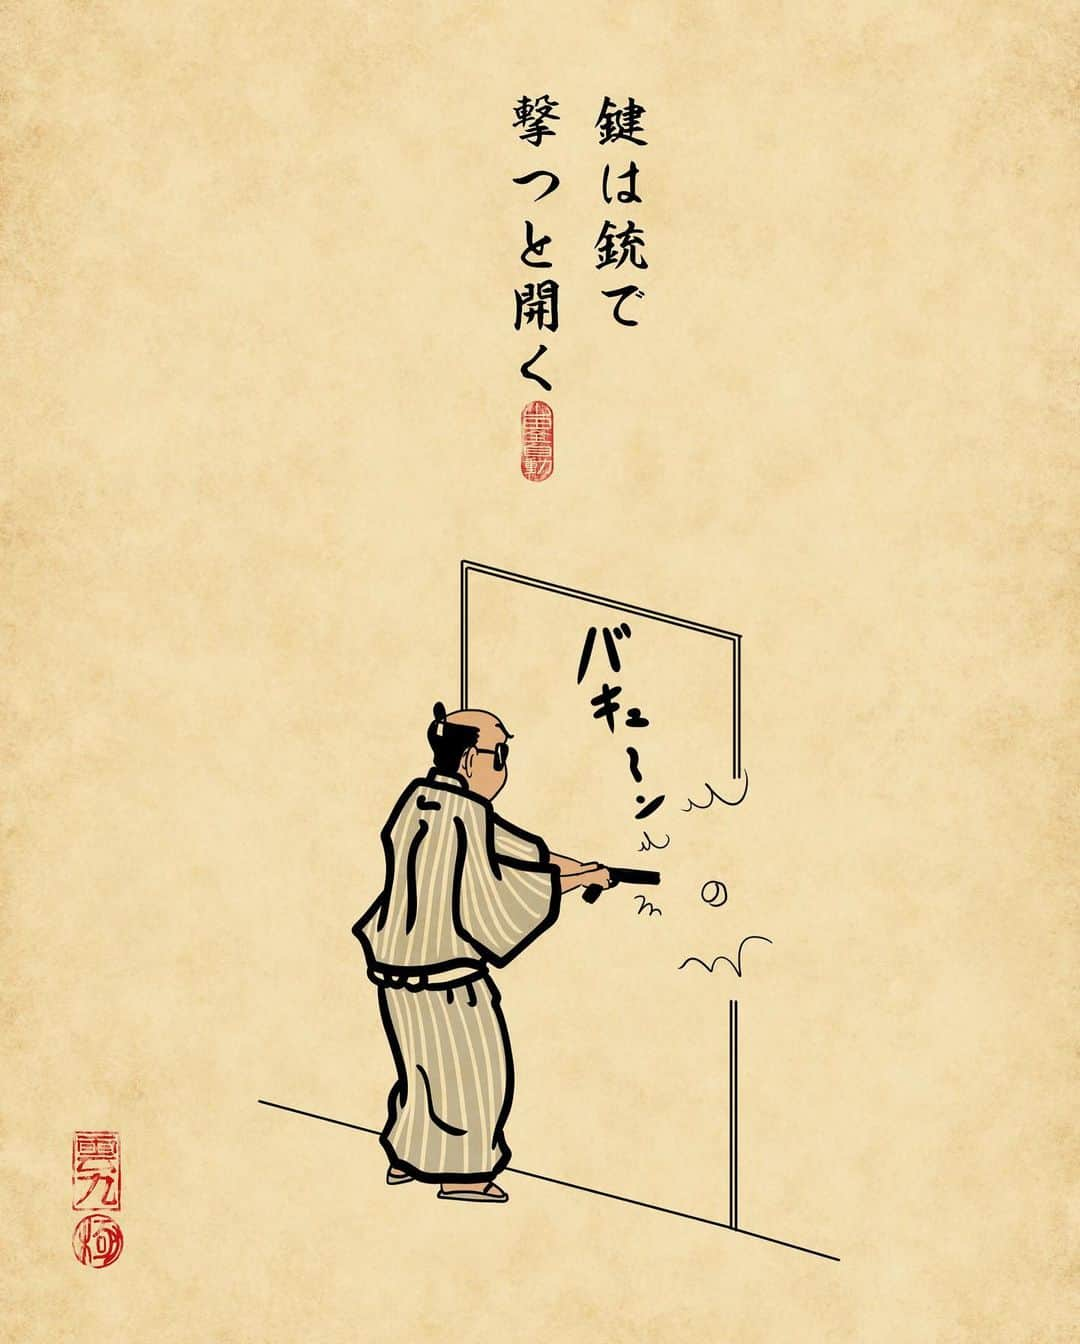 鍵は銃で
撃つと開く
バキューン